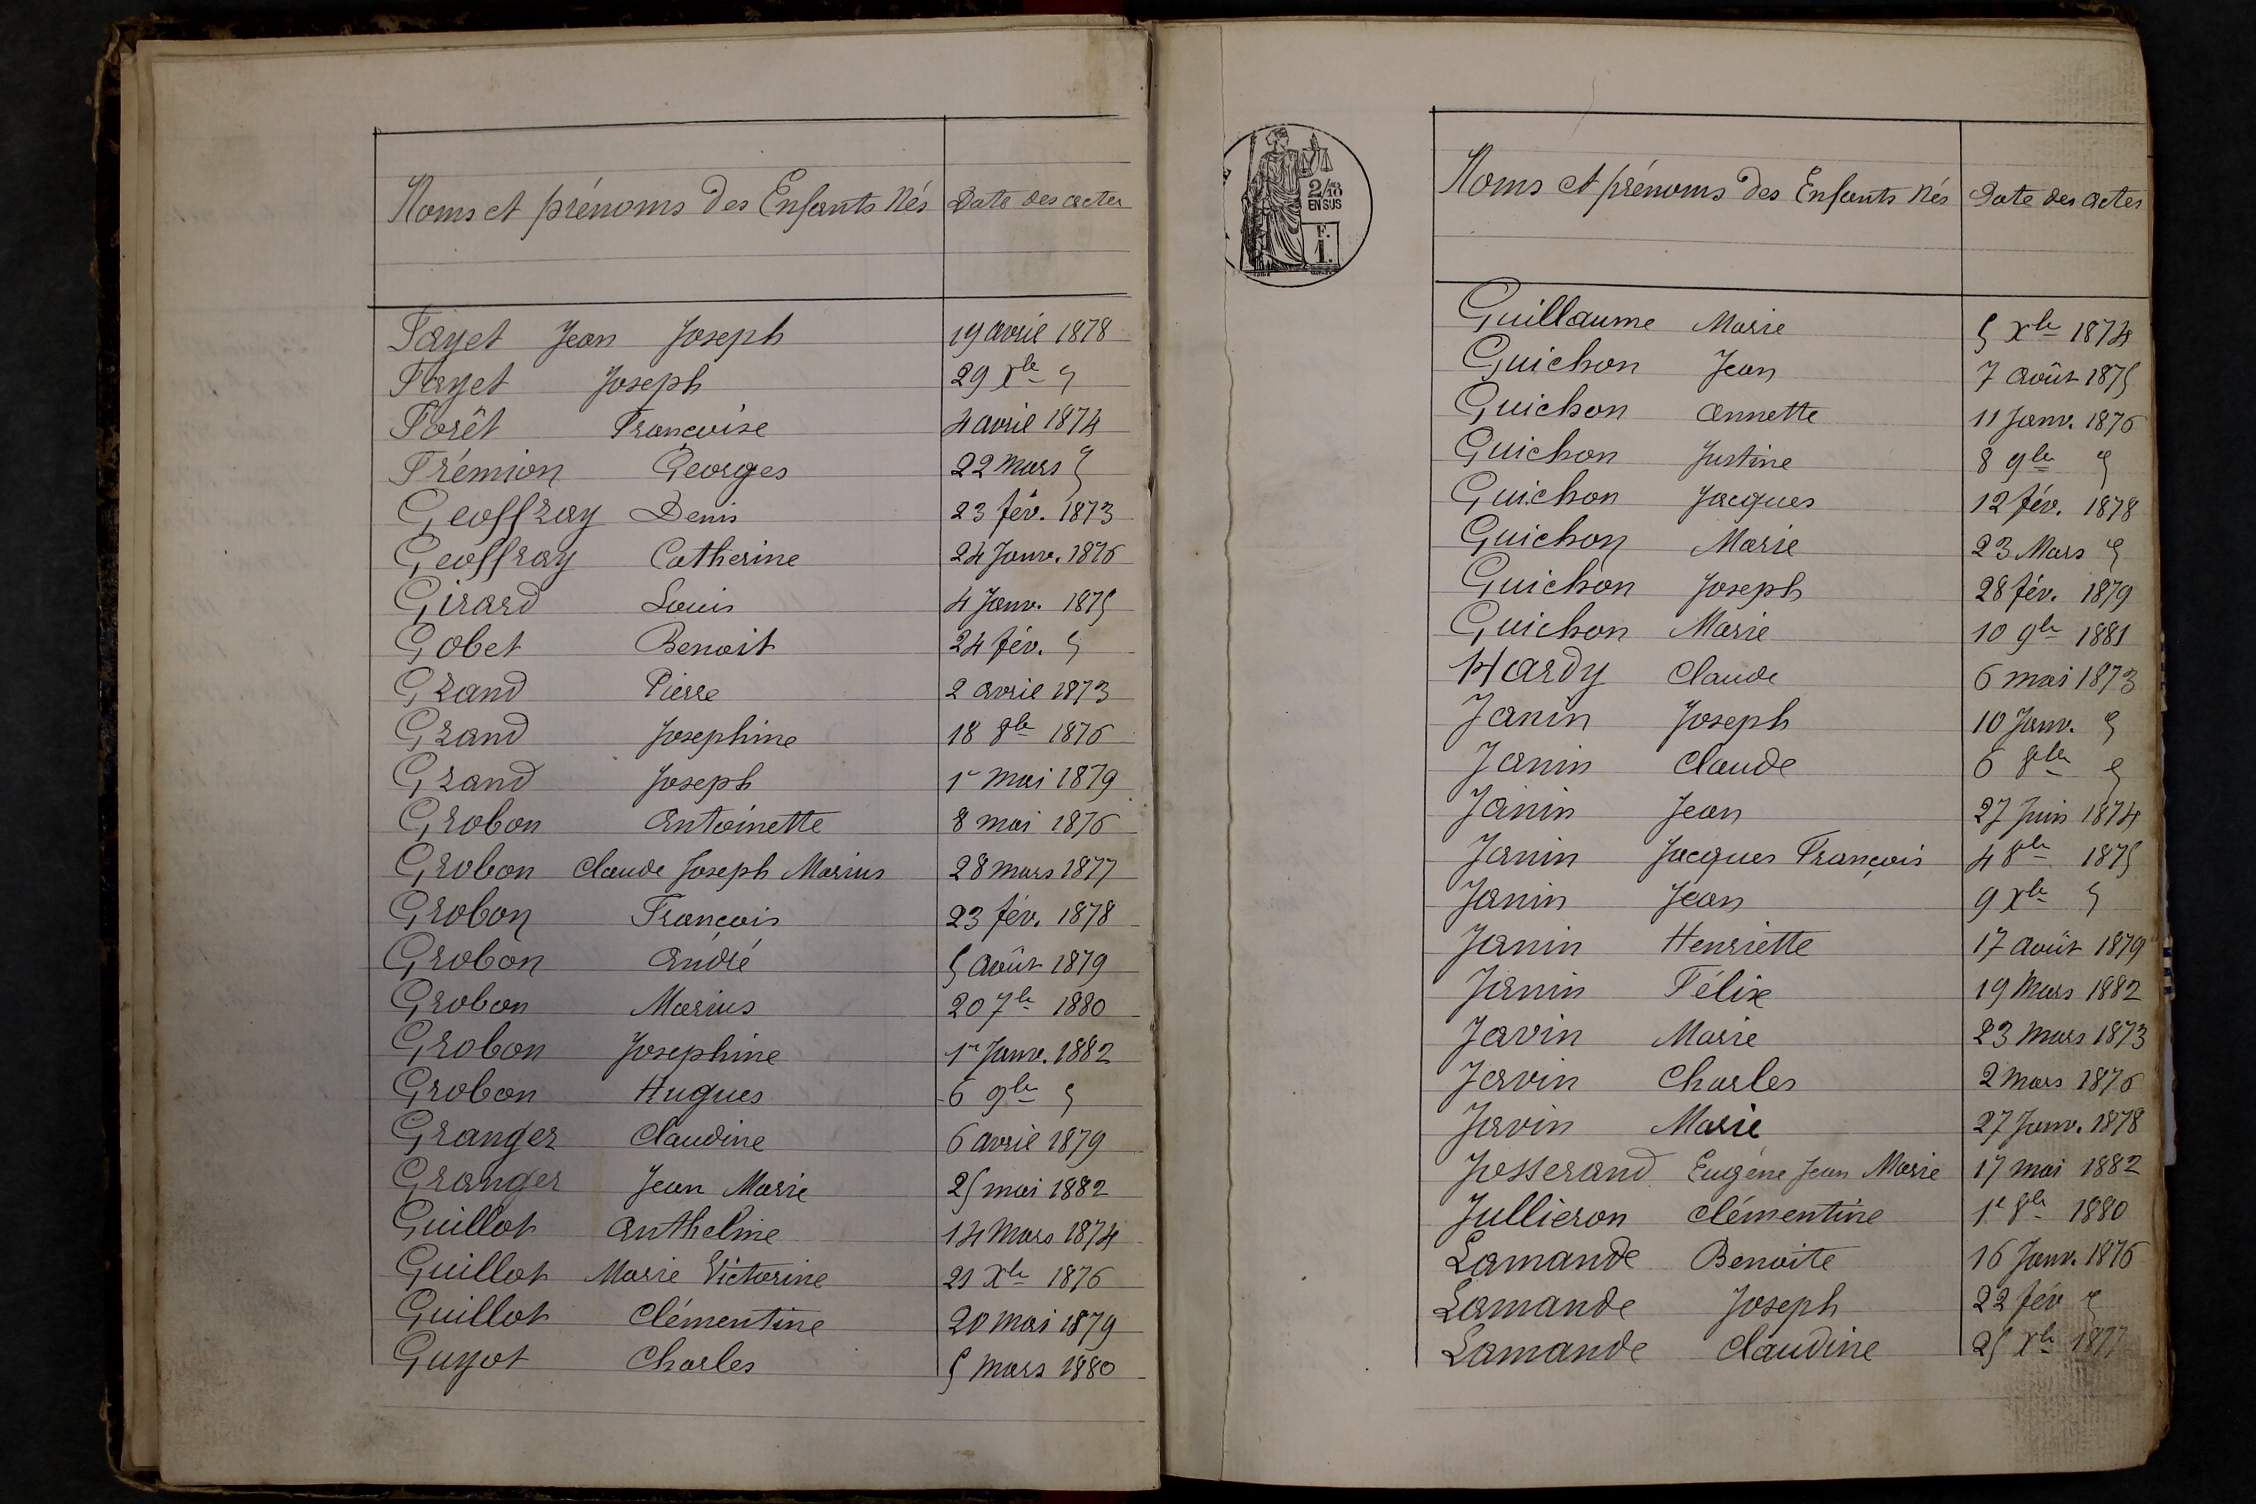 Noms et prénoms des Enfants Nés Date des actes
Fayet Jean Joseph 19 avril 1878
Fayet Joseph 29 Xbe "
Forêt Françoise 4 avril 1874
Frémion Georges 22 mars "
Geoffray Denis 23 fév. 1873
Geoffray Catherine 24 Janv. 1876
Girard Louis 4 Janv. 1875
Gobet Benoit 24 fév. "
Grand Pierre 2 avril 1873
Grand Josephine 18 8be 1876
Grand Joseph 1er mai 1879
Grobon Antoinette 8 mai 1876
Grobon Claude Joseph Marius 28 mars 1877
Grobon François 23 fév. 1878
Grobon André 5 Août 1879
Grobon Marius 20 7be 1880
Grobon Josephine 1er Janv. 1882
Grobon Hugues 6 9bre "
Granger Claudine 6 avril 1879
Granger Jean Marie 25 mai 1882
Guillot Anthelme 14 Mars 1874
Guillot Marie Victorine 21 Xbe 1876
Guillot Clémentine 20 mai 1879
Guyot Charles 5 Mars 1880
2/10 EN SUS
F.
1.
Noms et prénoms des Enfants Nés Date des actes
Guillaume Marie 5 Xbre 1874
Guichon Jean 7 Août 1875
Guichon Annette 11 Janv. 1876
Guichon Justine 8 9bre "
Guichon Jacques 12 fév. 1878
Guichon Marie 23 Mars "
Guichon Joseph 28 fév. 1879
Guichon Marie 10 9be 1881
Hardy Claude 6 mai 1873
Janin Joseph 10 Janv. "
Janin Claude 6 8bre "
Janin Jean 27 Juin 1874
Janin Jacques François 4 8bre 1875
Janin Jean 9 Xbre "
Janin Henriette 17 août 1879
Janin Félix 19 Mars 1882
Javin Marie 23 Mars 1873
Javin Charles 2 Mars 1876
Javin Marie 27 Janv. 1878
Josserand Eugène Jean Marie 17 mai 1882
Jullieron Clémentine 1er 8bre 1880
Lamande Benoite 16 Janv. 1876
Lamande Joseph 22 fév "
Lamande Claudine 25 Xbe 1877